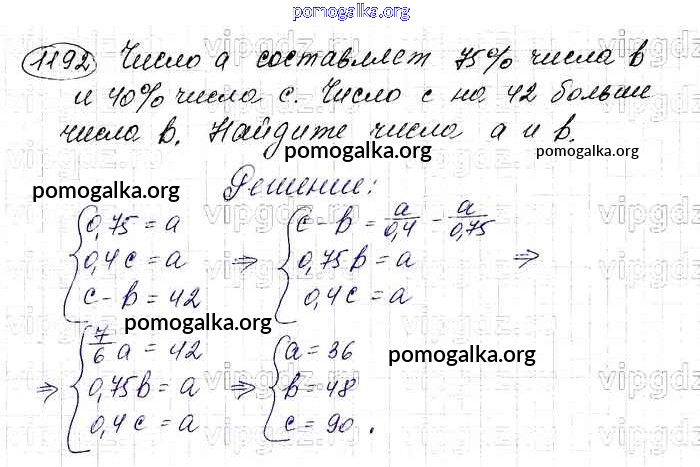 pomogalka.org
1192. Число а составляет 75% числа b
и 40% числа с. Число с на 42 больше
числа b. Найдите числа а и b.
pomogalka.org pomogalka.org
Решение:
pomogalka.org
0,75 = a
0,4c = a
c - b = 42
⇒
c - b = a/0,4 - a/0,75
0,75b = a
0,4c = a
⇒
pomogalka.org
pomogalka.org
⇒
7/6 a = 42
0,75b = a
0,4c = a
⇒
a = 36
b = 48
c = 90.